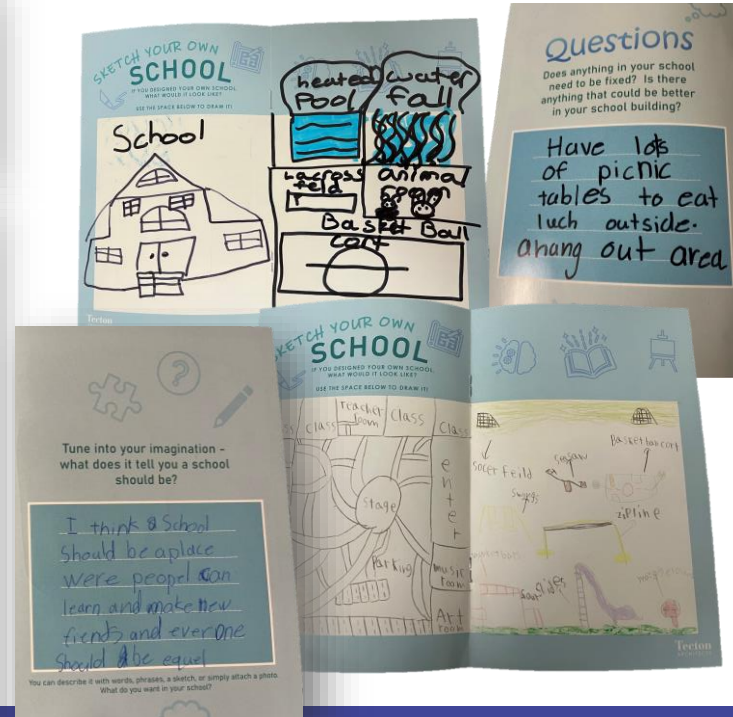 SKETCH YOUR OWN
SCHOOL
IF YOU DESIGNED YOUR OWN SCHOOL,
WHAT WOULD IT LOOK LIKE?
USE THE SPACE BELOW TO DRAW IT!
School
heated
Pool
water
fall
Lacross
feild
animal
room
Basket Ball
cort
Tecton
Questions
Does anything in your school
need to be fixed? Is there
anything that could be better
in your school building?
Have lots
of picnic
tables to eat
luch outside.
a hang out area
Tune into your imagination -
what does it tell you a school
should be?
I think a School
Should be a place
were peopel can
learn and make new
fiends and everone
Should be equel
You can describe it with words, phrases, a sketch, or simply attach a photo.
What do you want in your school?
SKETCH YOUR OWN
SCHOOL
IF YOU DESIGNED YOUR OWN SCHOOL,
WHAT WOULD IT LOOK LIKE?
USE THE SPACE BELOW TO DRAW IT!
Class
teacher
room
Class
Class
enter
Stage
Parking
music
room
Art
room
socer feild
seasaw
Basket ball cort
Swings
zipline
Tecton
ARCHITECTS